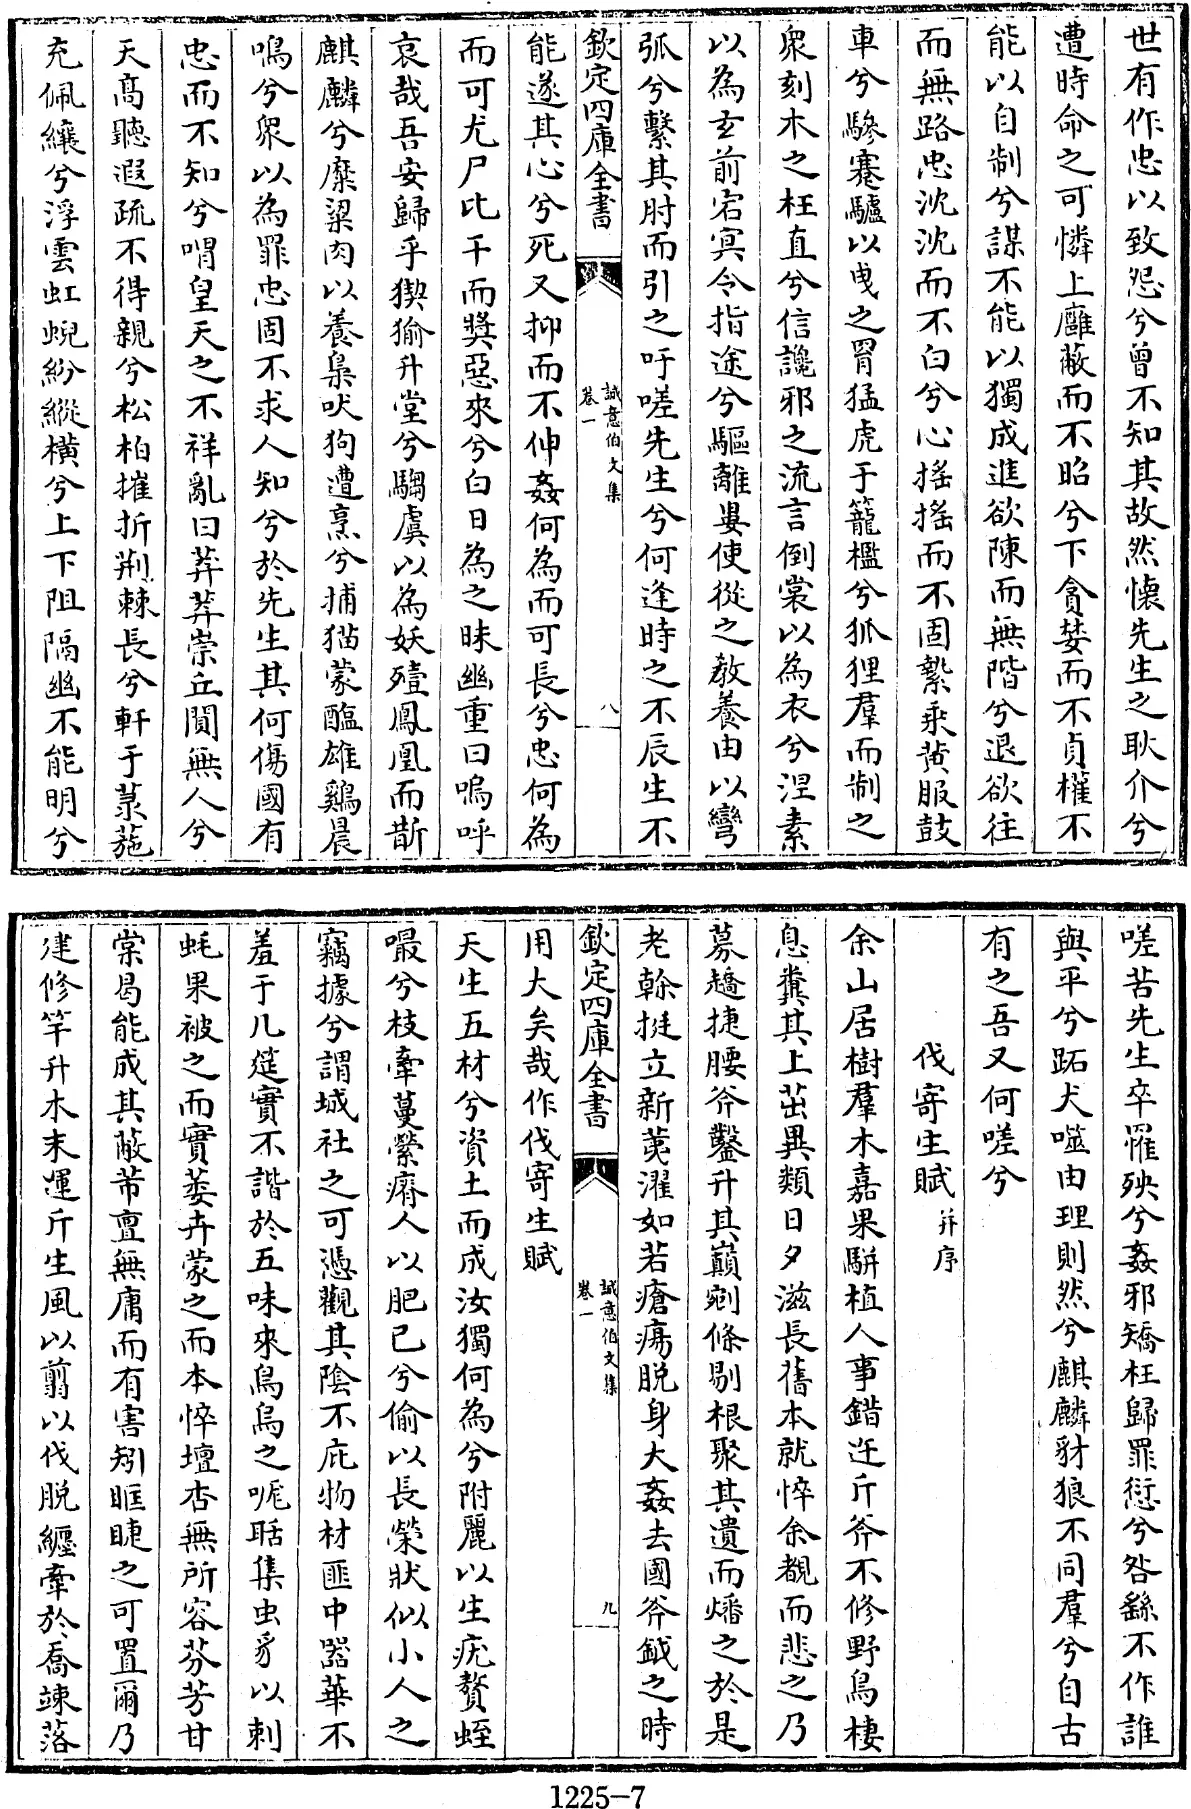 世有作忠以致怨兮曾不知其故然懷先生之耿介兮
遭時命之可憐上壅蔽而不昭兮下貪婪而不貞權不
能以自制兮謀不能以獨成進欲陳而無階兮退欲往
而無路忠沈沈而不白兮心搖搖而不固縶乘黄服鼓
車兮驂蹇驢以曳之罥猛虎于籠檻兮狐狸羣而制之
衆刻木之枉直兮信讒邪之流言倒裳以為衣兮涅素
以為玄前宕冥令指途兮驅離婁使從之教養由以彎
弧兮繫其肘而引之吁嗟先生兮何逢時之不辰生不
欽定四庫全書
誠意伯文集
卷一
八
能遂其心兮死又抑而不伸姦何為而可長兮忠何為
而可尤尸比干而奬惡來兮白日為之昧幽重曰嗚呼
哀哉吾安歸乎猰㺄升堂兮騶虞以為妖殪鳳凰而斮
麒麟兮糜粱肉以養梟吠狗遭烹兮捕猫蒙醢雄鷄晨
鳴兮衆以為罪忠固不求人知兮於先生其何傷國有
忠而不知兮喟皇天之不祥亂曰莽莽崇丘閴無人兮
天髙聽遐疏不得親兮松柏摧折荆棘長兮軒于菉葹
充佩纕兮浮雲虹蜺紛縱橫兮上下阻隔幽不能明兮
嗟苦先生卒罹殃兮姦邪矯枉歸罪愆兮咎繇不作誰
與平兮跖犬噬由理則然兮麒麟豺狼不同羣兮自古
有之吾又何嗟兮
伐寄生賦并序
余山居樹羣木嘉果駢植人事錯迕斤斧不修野鳥棲
息糞其上茁異類日夕滋長舊本就悴余覩而悲之乃
募趫捷腰斧鑿升其巔剜條剔根聚其遺而燔之於是
老榦挺立新荑濯如若瘡瘍脱身大姦去國斧鉞之時
欽定四庫全書
誠意伯文集
卷一
九
用大矣哉作伐寄生賦
天生五材兮資土而成汝獨何為兮附麗以生疣贅蛭
嘬兮枝牽蔓縈瘠人以肥已兮偷以長榮狀似小人之
竊據兮謂城社之可憑觀其陰不庇物材匪中器華不
羞于几筵實不諧於五味來鳥烏之呢聒集虫豸以刺
蚝果被之而實萎卉蒙之而本悴壇杏無所容芬芳甘
棠曷能成其蔽芾亶無庸而有害矧眶睫之可置爾乃
建修竿升木末運斤生風以翦以伐脱纏牽於喬竦落
1225-7